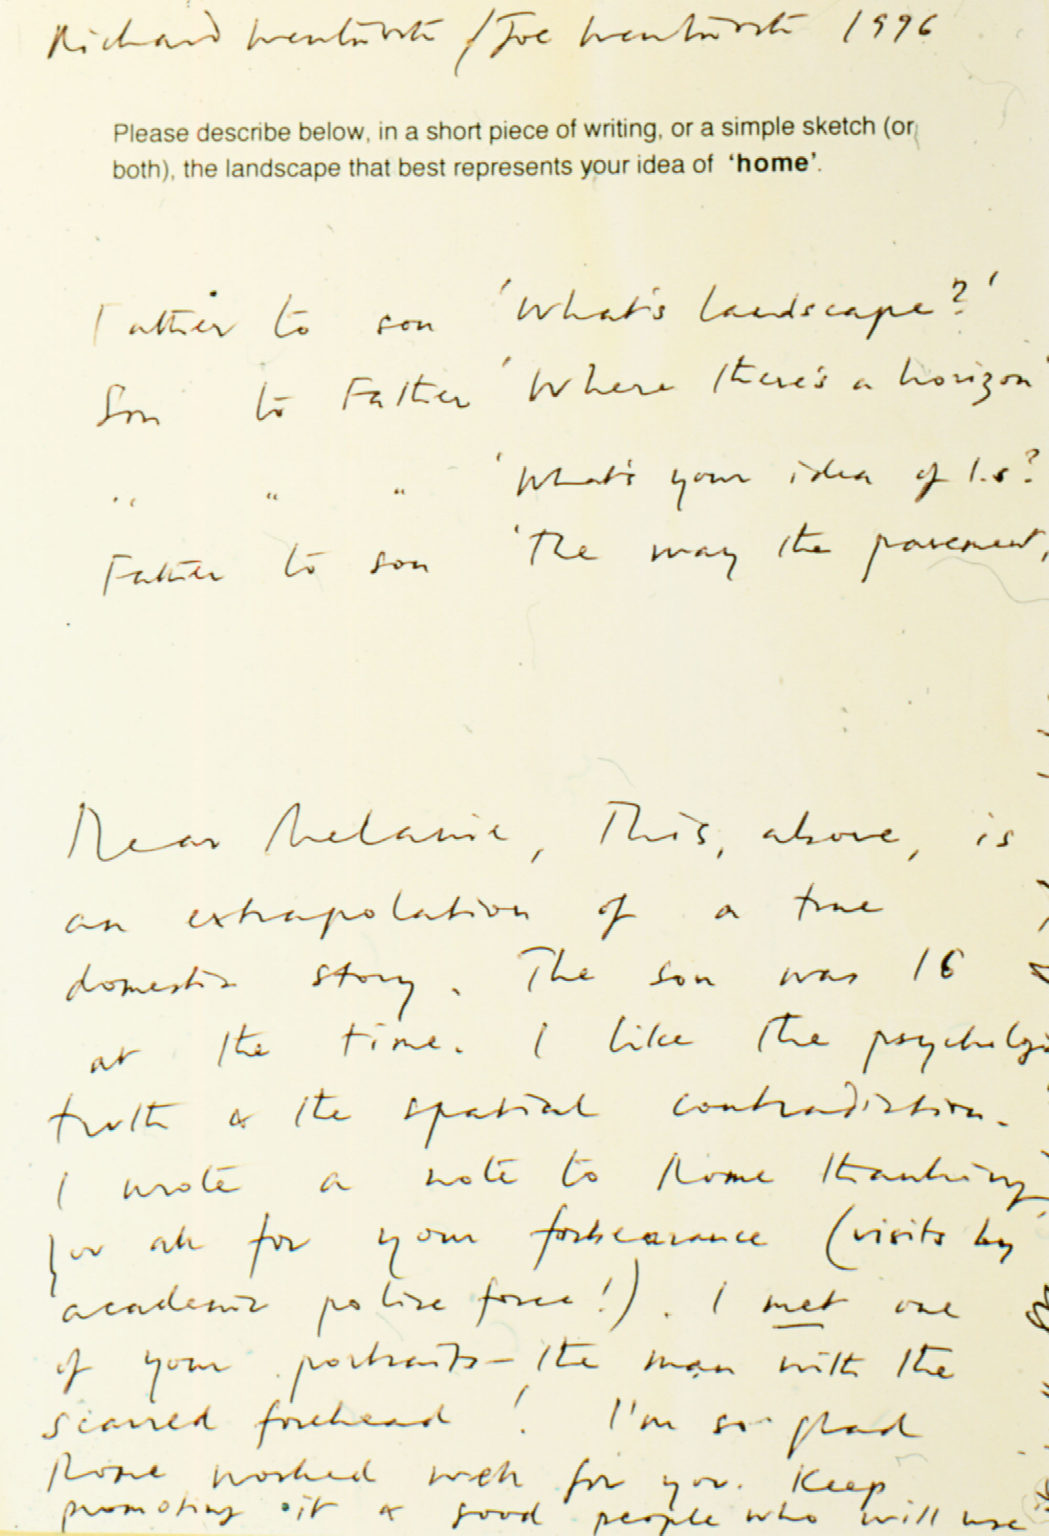 Richard Wentworth / Joe Wentworth 1996
Please describe below, in a short piece of writing, or a simple sketch (or
both), the landscape that best represents your idea of 'home'.
Father to son 'What's landscape?'
Son to Father 'Where there's a horizon'
" " " 'What's your idea of l.s?
Father to son 'The way the pavement,
Dear Melanie, This, above, is
an extrapolation of a true
domestic story. The son was 16
at the time. I like the
truth & the spatial contradiction.
I wrote a note to Rome thanking
you all for your forbearance (visits by
academic police force!). I met one
of your portraits - the man with the
scarred forehead! I'm so glad
Rome worked well for you. Keep
promoting it & good people who will use